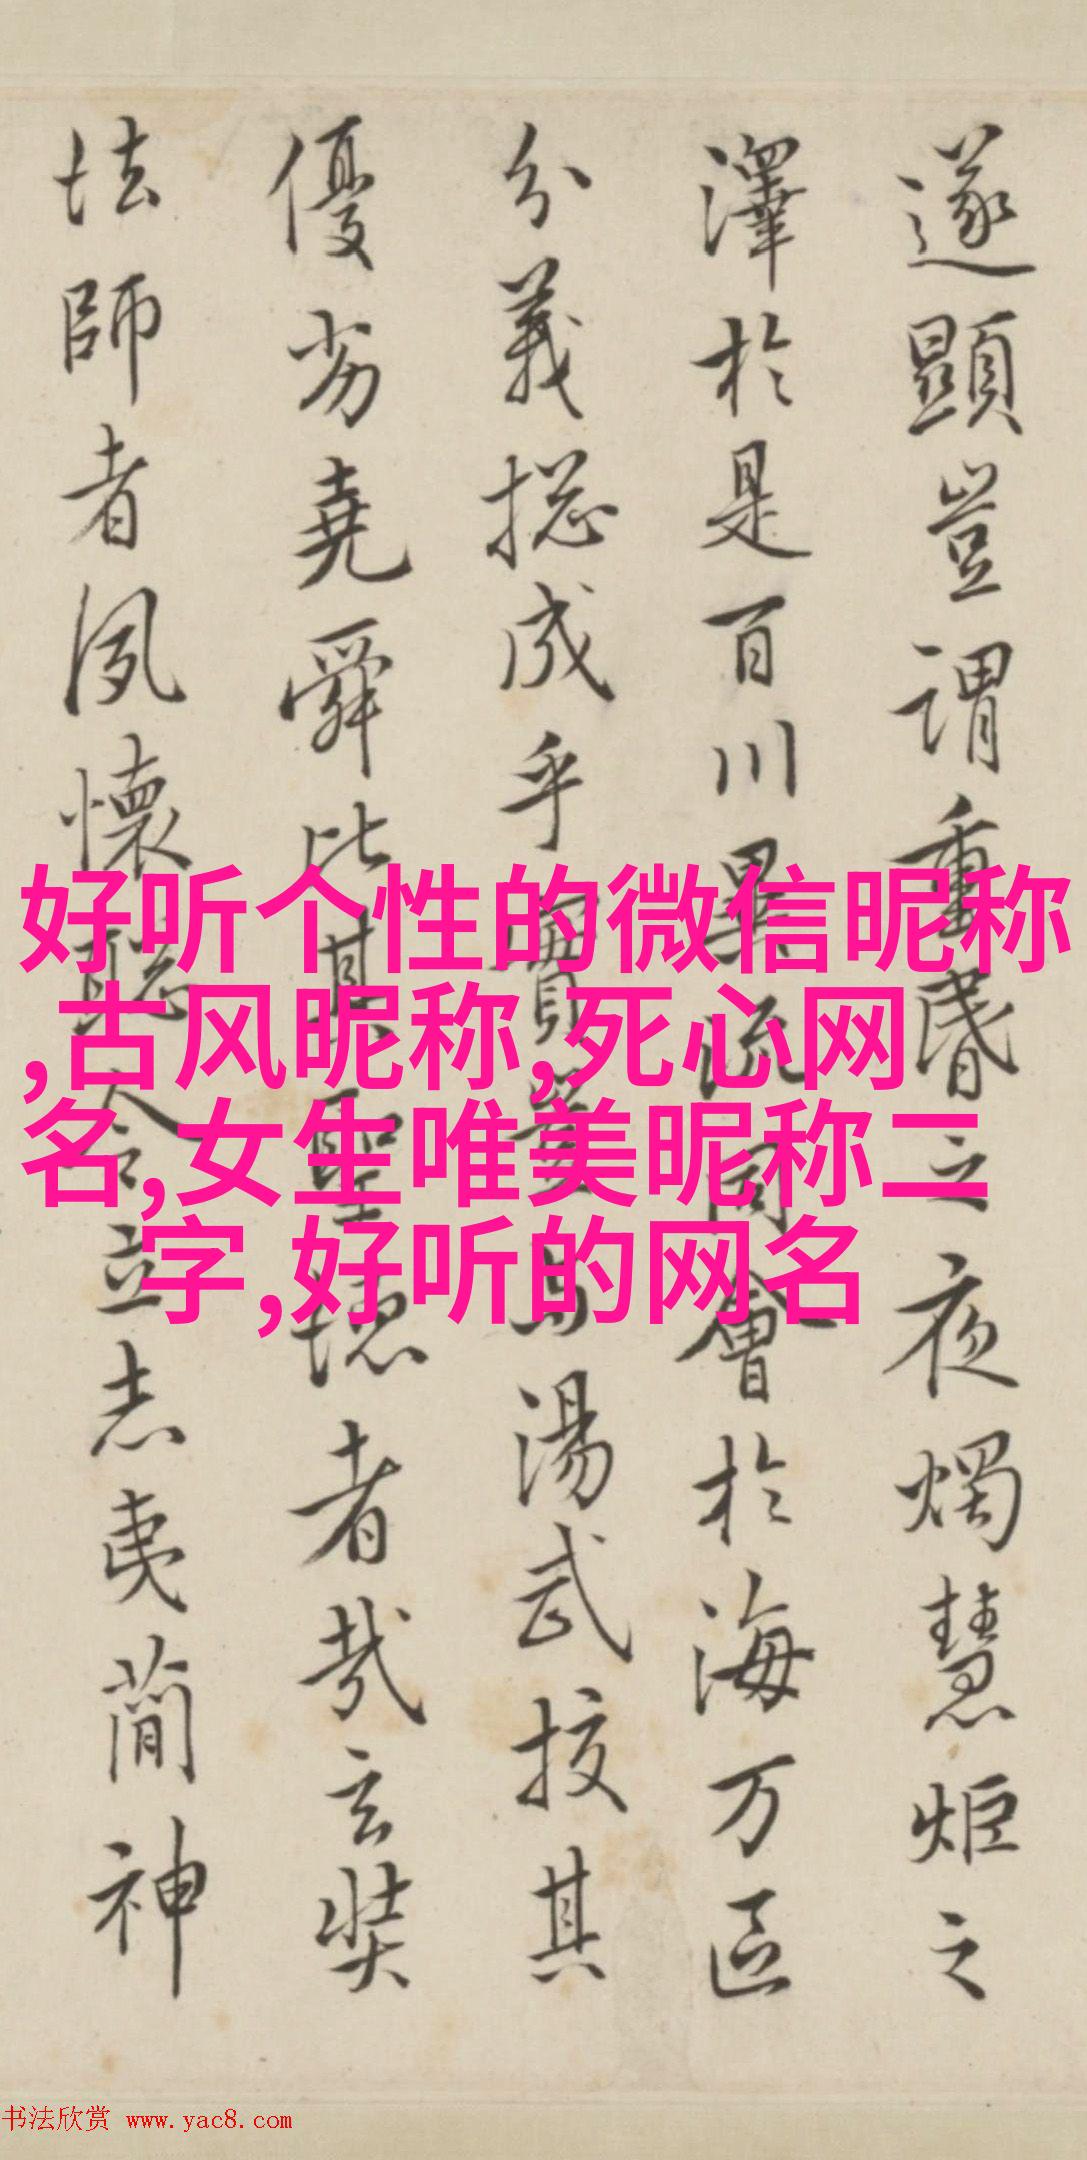 遂顯豈謂重昬之夜燭慧炬之
澤於是百川異流同會於海万區
分義揔成乎實豈与湯武挍其
優劣堯舜比其聖德者哉玄奘
法師者夙懷聡令立志夷簡神
好听个性的微信昵称
,古风昵称,死心网
名,女生唯美昵称二
字,好听的网名
书法欣赏 www.yac8.com